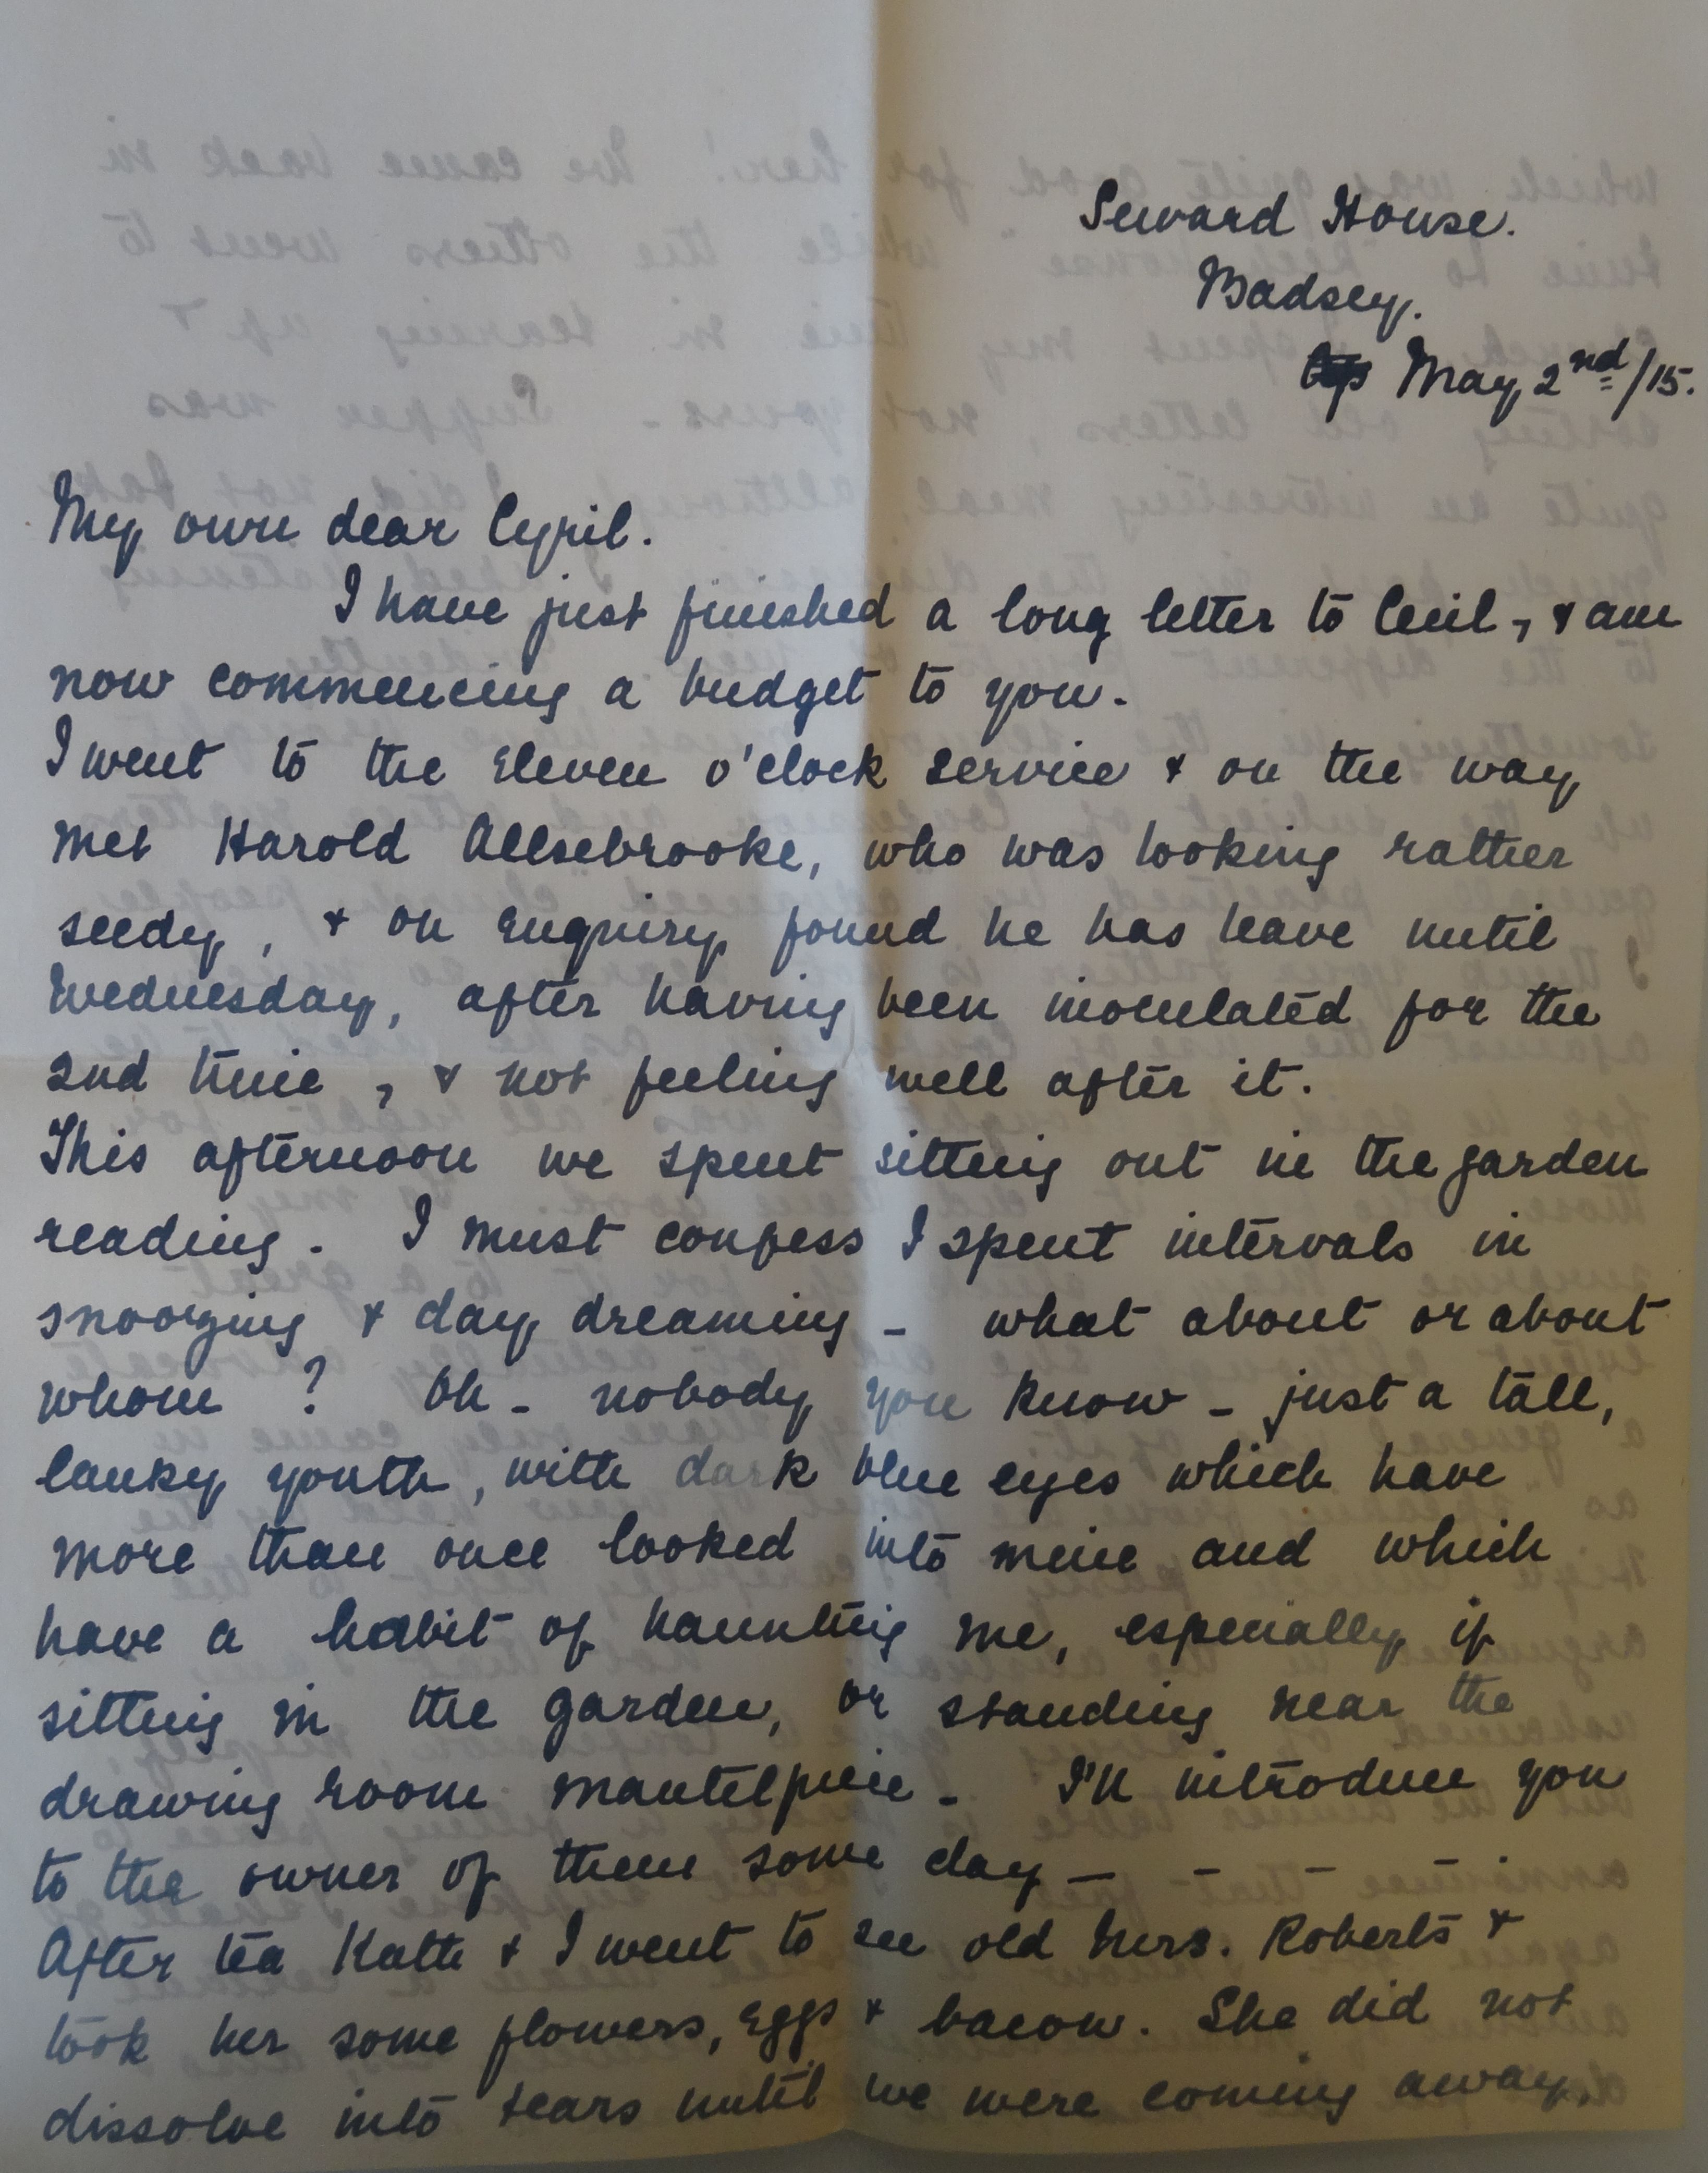 Seward House.
Badsey.
May 2nd/15.
My own dear Cyril.
I have just finished a long letter to Cecil, & am
now commencing a budget to you.
I went to the eleven o'clock service & on the way
met Harold Allsebrooke, who was looking rather
seedy, & on enquiry found he has leave until
Wednesday, after having been inoculated for the
2nd time, & not feeling well after it.
This afternoon we spent sitting out in the garden
reading. I must confess I spent intervals in
snoozing & day dreaming - what about or about
whom? Oh - nobody you know - just a tall,
lanky youth, with dark blue eyes which have
more than once looked into mine and which
have a habit of haunting me, especially if
sitting in the garden, or standing near the
drawing room mantelpiece - I'll introduce you
to the owner of them some day - - - -
After tea Katte & I went to see old Mrs. Roberts &
took her some flowers, eggs & bacon. She did not
dissolve into tears until we were coming away,